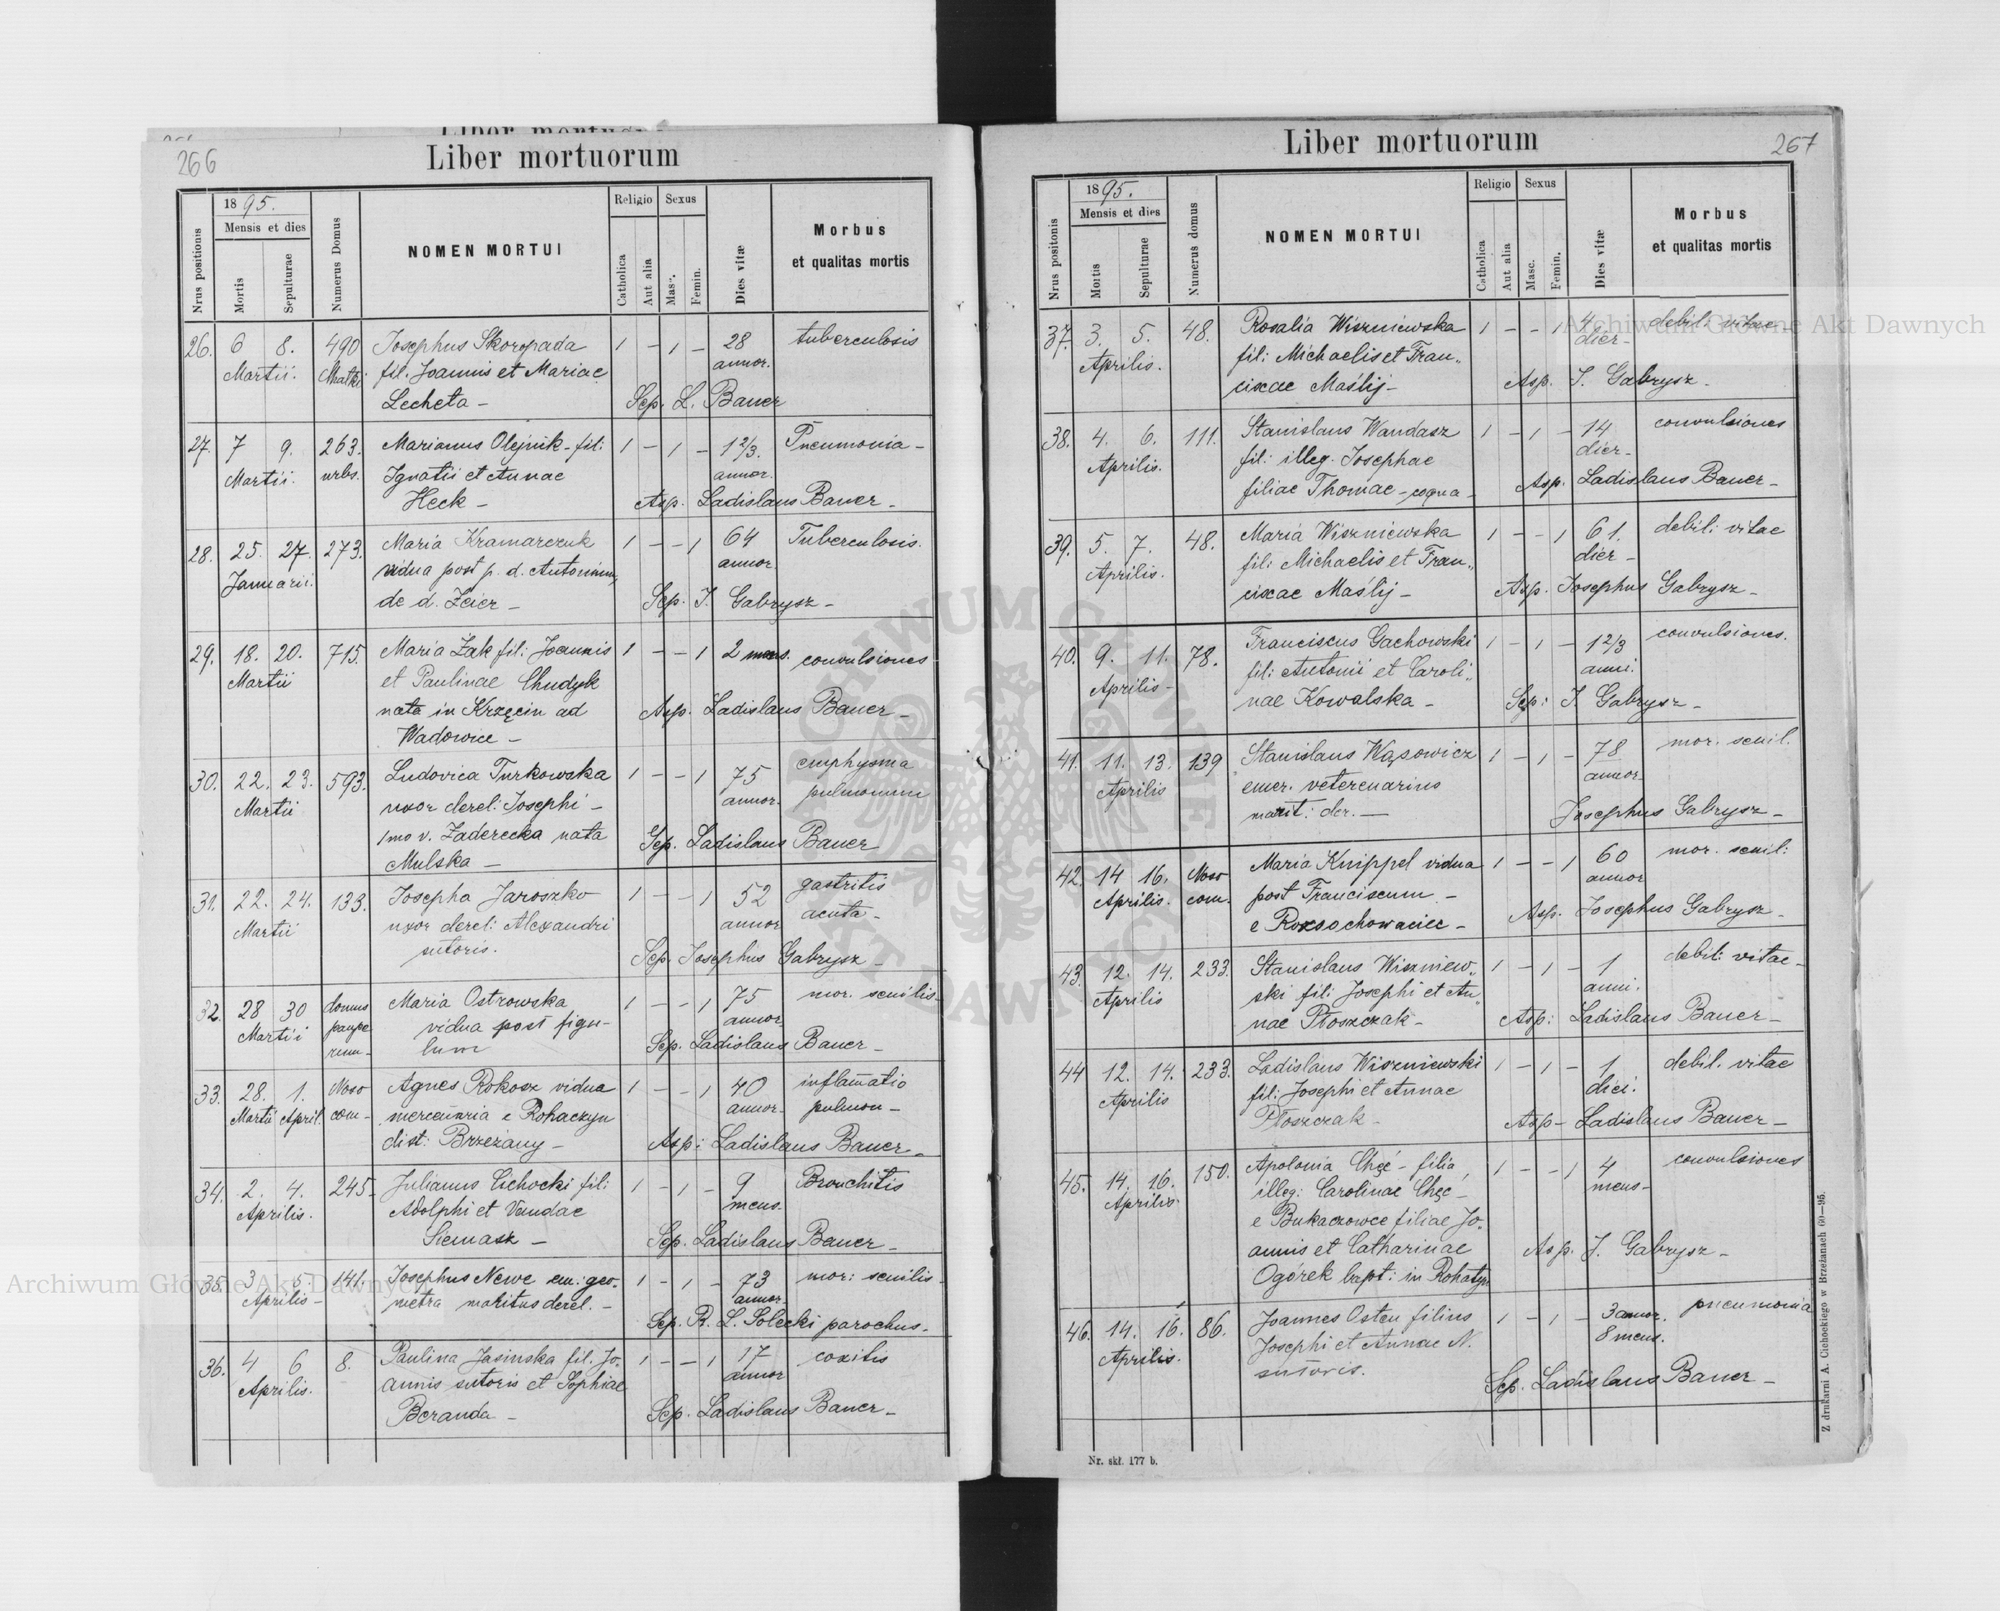 266
Liber mortuorum
Nrus positionis
1895.
Mensis et dies
Mortis
Sepulturae
Numerus Domus
NOMEN MORTUI
Religio
Catholica
Aut alia
Sexus
Masc.
Femin.
Dies vitæ
Morbus
et qualitas mortis
26. 6 8. 490 Josephus Skoropada 1 - 1 - 28 tuberculosis
Martii. Chatki fil. Joannis et Mariae annor.
Lecheta - Sep. L. Bauer
27. 7 9. 263. Marianus Olejnik - fil: 1 - 1 - 1 2/3. Pneumonia -
Martii. urbs. Ignatii et Annae annor.
Heck - Asp. Ladislaus Bauer -
28. 25. 27. 273. Maria Kramarczuk 1 - - 1 64 Tuberculosis.
Januarii. vidua post p. d. Antonium annor
de d. Zeier - Sep. J. Gabrysz -
29. 18. 20. 715. Maria Żak fil: Joannis 1 - - 1 2 mens. convulsiones
Martii et Paulinae Chudyk
nata in Krzęcin ad Asp. Ladislaus Bauer -
Wadowice -
30. 22. 23. 593. Ludovica Turkowska 1 - - 1 75 emphysma
Martii uxor derel: Josephi - annor. pulmonum
1mo v. Zaderecka nata Sep. Ladislaus Bauer
Mulska -
31. 22. 24. 133. Josepha Jaroszko 1 - - 1 52 gastritis
Martii uxor derel: Alexandri annor acuta -
sutoris. Sep. Josephus Gabrysz -
32. 28 30 domus Maria Ostrowska 1 - - 1 75 mor. senilis
Martii paupe vidua post figu- annor
rum - lum Sep. Ladislaus Bauer -
33. 28. 1. Noso Agnes Rokosz vidua 1 - - 1 40 inflamatio
Martii April. com - mercenaria e Rohaczyn annor - pulmon -
dist: Brzeżany - Asp: Ladislaus Bauer -
34. 2. 4. 245 - Julianus Cichocki fil: 1 - 1 - 9 Bronchitis
Aprilis. Adolphi et Vandae mens.
Siemask - Sep. Ladislaus Bauer -
35. 3 5. 141. Josephus Newe em: geo- 1 - 1 - 73 mor: senilis -
Aprilis - metra maritus derel. - annor.
Sep. R. L. Solecki parochus.
36. 4 6 8. Paulina Jasinska fil. Jo- 1 - - 1 17 coxitis
Aprilis. annis sutoris et Sophiae annor
Beranda - Sep. Ladislaus Bauer -
267
Liber mortuorum
Nrus positonis
1895.
Mensis et dies
Mortis
Sepulturae
Numerus domus
NOMEN MORTUI
Religio
Catholica
Aut alia
Sexus
Masc.
Femin.
Dies vitæ
Morbus
et qualitas mortis
37. 3. 5. 48. Rosalia Wiszniewska 1 - - 1 4 debil. vitae
Aprilis. fil: Michaelis et Fran„ dier -
ciscae Maślij - Asp. J. Gabrysz -
38. 4. 6. 111. Stanislaus Wandasz 1 - 1 - 14 convulsiones
Aprilis. fil: illeg. Josephae dier -
filiae Thomae - Asp. Ladislaus Bauer -
39. 5. 7. 48. Maria Wiszniewska 1 - - 1 61. debil: vitae
Aprilis. fil: Michaelis et Fran„ dier -
ciscae Maślij - Asp. Josephus Gabrysz -
40. 9. 11. 78. Franciscus Gachowski 1 - 1 - 1 2/3 convulsiones.
Aprilis - fil: Antonii et Caroli„ anni.
nae Kowalska - Sep: J. Gabrysz -
41. 11. 13. 139 Stanislaus Wąsowicz 1 - 1 - 78 mor. senil.
Aprilis emer. veterenarius annor.
marit: der. - Josephus Gabrysz -
42. 14 16. Noso Maria Knippel vidua 1 - - 1 60 mor. senil:
Aprilis. com. post Franciscum - annor
e Rozsochowaciec - Asp. Josephus Gabrysz -
43. 12. 14. 233. Stanislaus Wiszniew„ 1 - 1 - 1 debil: vitae -
Aprilis ski fil: Josephi et An„ anni.
nae Płoszczak - Asp: Ladislaus Bauer -
44 12. 14. 233. Ladislaus Wiszniewski 1 - 1 - 1 debil. vitae
Aprilis fil: Josephi et Annae diei.
Płoszczak - Asp - Ladislaus Bauer -
45. 14. 16. 150. Apolonia Chęć - filia 1 - - 1 4 convulsiones
Aprilis illeg: Carolinae Chęć - mens -
e Bukaczowce filiae Jo„
annis et Catharinae Asp. J. Gabrysz -
Ogórek bapt: in Rohatyn
46. 14. 16. 86. Joannes Osten filius 1 - 1 - 3 annor. pneumonia
Aprilis. Josephi et Annae N. 8 mens.
sutoris. Sep. Ladislaus Bauer -
Nr. skł. 177 b.
Z drukarni A. Cichockiego w Brzeżanach 60—95.
Archiwum Główne Akt Dawnych
Archiwum Główne Akt Dawnych
ARCHIWUM GŁÓWNE AKT DAWNYCH